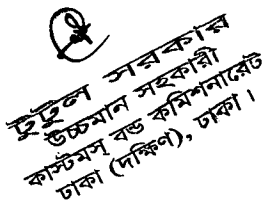 টুটুল সরকার
উচ্চমান সহকারী
কাস্টমস্ বন্ড কমিশনারেট
ঢাকা (দক্ষিণ), ঢাকা।